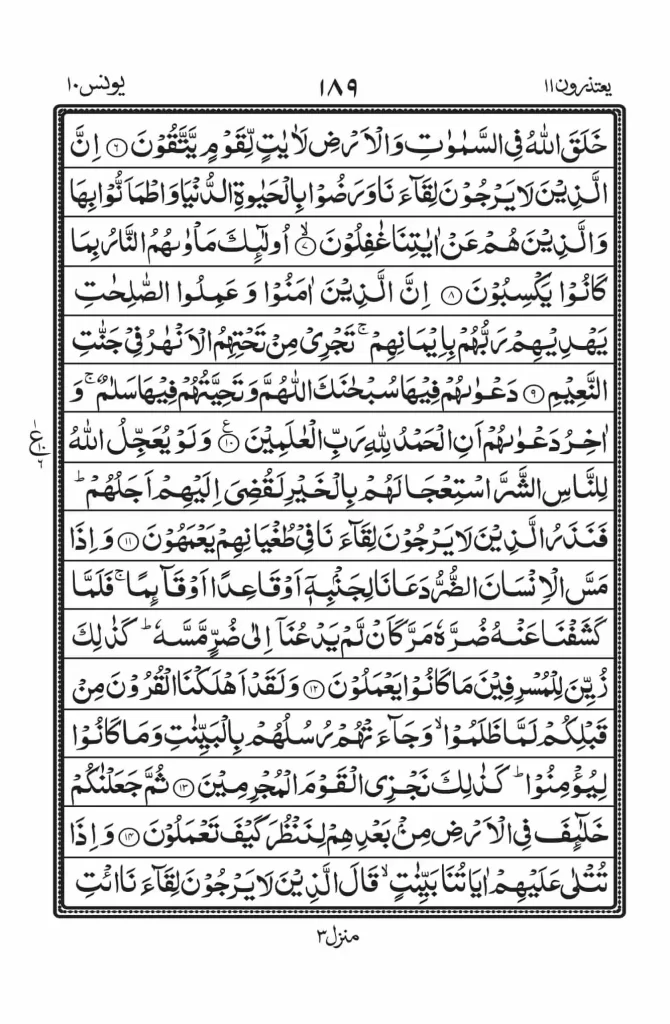 يعتذرون ١١ ١٨٩ يونس ١٠
خَلَقَ اللّٰهُ فِى السَّمٰوٰتِ وَالْاَرْضِ لَاٰيٰتٍ لِّقَوْمٍ يَّتَّقُوْنَ ۝٦ اِنَّ
الَّذِيْنَ لَا يَرْجُوْنَ لِقَآءَنَا وَرَضُوْا بِالْحَيٰوةِ الدُّنْيَا وَاطْمَاَنُّوْا بِهَا
وَالَّذِيْنَ هُمْ عَنْ اٰيٰتِنَا غٰفِلُوْنَ ۝٧ۙ اُولٰٓئِكَ مَاْوٰىهُمُ النَّارُ بِمَا
كَانُوْا يَكْسِبُوْنَ ۝٨ اِنَّ الَّذِيْنَ اٰمَنُوْا وَعَمِلُوا الصّٰلِحٰتِ
يَهْدِيْهِمْ رَبُّهُمْ بِاِيْمَانِهِمْ ۚ تَجْرِىْ مِنْ تَحْتِهِمُ الْاَنْهٰرُ فِىْ جَنّٰتِ
النَّعِيْمِ ۝٩ دَعْوٰىهُمْ فِيْهَا سُبْحٰنَكَ اللّٰهُمَّ وَتَحِيَّتُهُمْ فِيْهَا سَلٰمٌ ۚ وَ
اٰخِرُ دَعْوٰىهُمْ اَنِ الْحَمْدُ لِلّٰهِ رَبِّ الْعٰلَمِيْنَ ۝١٠ع وَلَوْ يُعَجِّلُ اللّٰهُ
لِلنَّاسِ الشَّرَّ اسْتِعْجَالَهُمْ بِالْخَيْرِ لَقُضِىَ اِلَيْهِمْ اَجَلُهُمْ ؕ
فَنَذَرُ الَّذِيْنَ لَا يَرْجُوْنَ لِقَآءَنَا فِىْ طُغْيَانِهِمْ يَعْمَهُوْنَ ۝١١ وَاِذَا
مَسَّ الْاِنْسَانَ الضُّرُّ دَعَانَا لِجَنْۢبِهٖۤ اَوْ قَاعِدًا اَوْ قَآئِمًا ۚ فَلَمَّا
كَشَفْنَا عَنْهُ ضُرَّهٗ مَرَّ كَاَنْ لَّمْ يَدْعُنَاۤ اِلٰى ضُرٍّ مَّسَّهٗ ؕ كَذٰلِكَ
زُيِّنَ لِلْمُسْرِفِيْنَ مَا كَانُوْا يَعْمَلُوْنَ ۝١٢ وَلَقَدْ اَهْلَكْنَا الْقُرُوْنَ مِنْ
قَبْلِكُمْ لَمَّا ظَلَمُوْا ۙ وَجَآءَتْهُمْ رُسُلُهُمْ بِالْبَيِّنٰتِ وَمَا كَانُوْا
لِيُؤْمِنُوْا ؕ كَذٰلِكَ نَجْزِى الْقَوْمَ الْمُجْرِمِيْنَ ۝١٣ ثُمَّ جَعَلْنٰكُمْ
خَلٰٓئِفَ فِى الْاَرْضِ مِنْۢ بَعْدِهِمْ لِنَنْظُرَ كَيْفَ تَعْمَلُوْنَ ۝١٤ وَاِذَا
تُتْلٰى عَلَيْهِمْ اٰيَاتُنَا بَيِّنٰتٍ ۙ قَالَ الَّذِيْنَ لَا يَرْجُوْنَ لِقَآءَنَا ائْتِ
منزل ٣